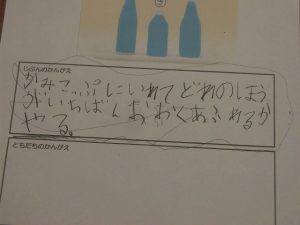 じぶんのかんがえ
かみこっぷにいれてどれのほう
がいちばんおおくあふれるか
やる。
ともだちのかんがえ